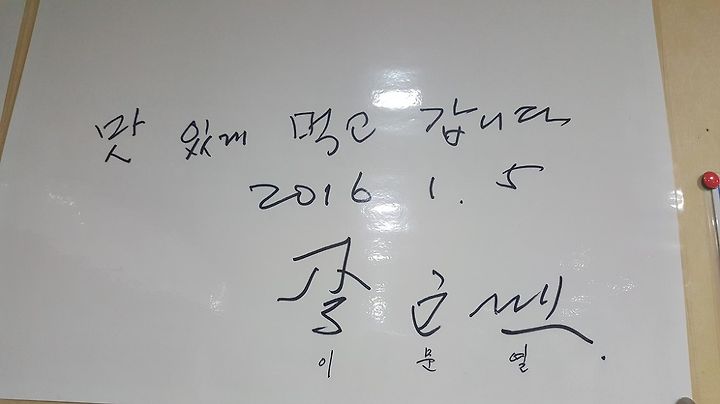 맛 있게 먹고 갑니다
2016 1. 5
이 문 열